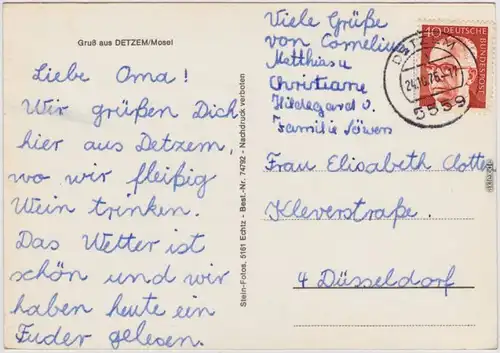 Gruß aus DETZEM/Mosel
Liebe Oma!
Wir grüßen Dich
hier aus Detzem,
wo wir fleißig
Wein trinken.
Das Wetter ist
schön und wir
haben heute ein
Fuder gelesen.
Stein-Fotos, 5161 Echtz - Best.-Nr. 74792 - Nachdruck verboten
Viele Grüße
von Cornelius
Matthias u
Christiane
Hildegard u.
Familie Löwen
DETZEM
24.10.76.-17
5559
40
DEUTSCHE
BUNDESPOST
Frau Elisabeth Clotten
Kleverstraße.
4 Düsseldorf